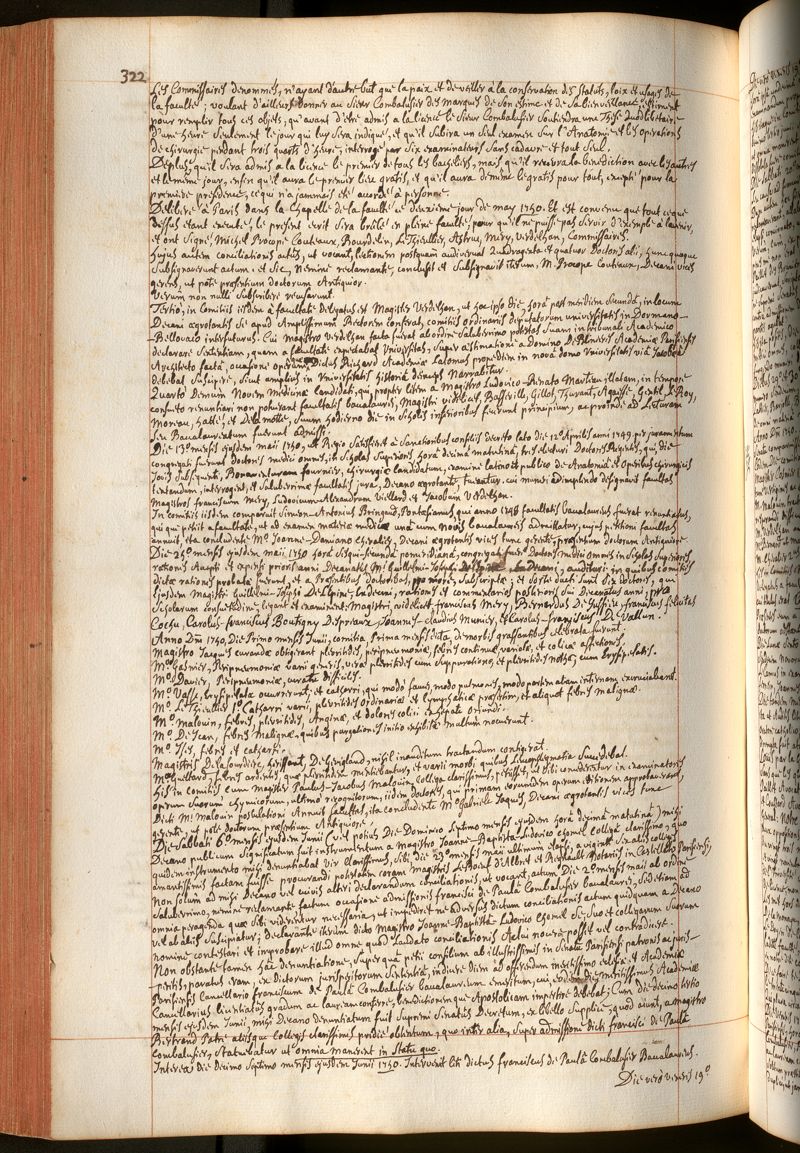 322
Les Commissaires denommés, n'ayant d'autre but que la paix et de veiller à la conservation des Statuts, loix et usages de
la faculté; voulant d'ailleurs donner au Sieur Combalusier des marques de Son estime et de Sa bienveillance, estiment
pour remplir tous ces objets, qu'avant d'être admis a la licence le Sieur Combalusier Soutiendra une These quodlibetaire
d'une heure Seulement le jour qui luy Sera indiqué, et qu'il Subira un Seul examen Sur l'Anatomie et les operations
de chirurgie pendant trois quarts d'heure, interrogé par Six examinateurs Sans cadavre et tout Seul.
Deplus, qu'il Sera admis a la licence le premier de tous les bacheliers, mais qu'il recevra la benediction avec les autres
et le même jour, enfin qu'il aura le premier lieu gratis, et qu'il aura de même le gratis pour tout, excepté pour la
premiere présidence, ce qui n'a jammais eté accordé à personne.
Deliberé à Paris dans la Chapelle de la faculté ce deuxieme jour de may 1750. Et est convenu que tout ce que
dessus etant executé, le present ecrit Sera brulé en pleine faculté, pour qu'il ne puisse pas Servir d'exemple a l'avenir,
et ont Signé, Michel Procope Couteaux, Bourdelin, Le Thieullier, Astruc, Mery, Verdelhan, Commissaires.
hujus autem conciliationis actus, ut vocant, lectionem postquam audiverunt Doctores alii, hunc quoque
Subsignaverunt actum, et Sic, Nemine reclamante, conclusit et Subsignavit iterum, M. Procope Couteux, Decani vices
gerens, ut pote presentium doctorum Antiquior.
Verum non nulli Subscribere recusarunt.
Tertio, in Comitiis iisdem a facultate delegatus est Magister Verdelhan, ut hoc ipso die, horâ post meridiem Secundâ, in locum
Decani ægrotantis Se apud Amplissimum Rectorem conferat, comitiis ordinariis deputatorum universitatis in Dormano-
Bellovaco interfuturus. Cui magistro Verdelhan facta fuerat ab ordine Saluberrimo potestas Suam in tribunali Academico
declarare Sententiam, quam a facultate expectabat Universitas, Super æstimatione a Domino Academiæ Parisiensis
Architecto factâ, occasione operum, Dictus Richard Academiæ Latomus propediem in nova domo Universitatis viâ Jacobæâ
debebat Suscipere, Sicut amplius in Universitatis historiâ denuo Narrabitur.
Quarto Demum Novem Medicinæ Candidati, qui, propter litem a Magistro Ludovico-Renato Marteau illatam, in tempore
consueto renuntiari non potuerant facultatis baccalaurei, Magistri videlicet, Basseville, Gillot, Thurant, Agaisse, Gentil, Le Roy,
Moreau, hatte, et De la motte, Suum hodierno die in Scholis inferioribus fecerunt principium, ac proinde ad Lecturam
Seu Baccalaureatum fuerunt admissi.
Die 13â mensis ejusdem maii 1750, ut Regio Satisfieret ac Sanctionibus consiliis decreto lato die 12â Aprilis anni 1749, per juramentum
congregati fuerunt doctores medici omnes, in Scholas Superiores, horâ decimâ matutinâ, tres electuri Doctores Regentes, qui, die
Jovis Subsequenti, Bonaventuram fournier, chirurgiæ candidatum, examine latino et publico de Anatomiâ et Operibus chirurgicis
tentandum, interrogent, et Saluberrimæ facultatis jura, Decano ægrotante, tueantur, cui muneri adimplendo designavit facultas
Magistros franciscum mery, Ludovicum-Alexandrum Vieillard et Jacobum Verdelhan.
In comitiis iisdem comparuit Simon-Antonius Bringaud, Pontesianus qui anno 1746 facultatis baccalaureus fuerat renuntiatus,
qui que petiit a facultate, ut ad examen materiæ medicæ una cum novis baccalaureis admittatur, cujus petitioni facultas
annuit, ita concludente Mo. Joanne-Damiano Chevalier, Decani ægrotantis vices tunc gerente, præsentium doctorum Antiquiore.
Die 28â mensis ejusdem maii 1750 horâ Sesqui-Secundâ pomeridianâ, congregati fuere Doctores medici omnes in Scholas Superiores
rationes Accepti et expensi priori anni Decanatûs Mi. Guillelmi-Josephi De l'Epine, audituri: in quibus comitiis
dictæ rationes probatæ fuerunt, et a Præsentibus doctoribus, pro more, Subscriptæ; et Sorte ducti Sunt Sex Doctores, qui
Ejusdem Magistri Guillelmi-Josephi De l'Epine, Exdecani, rationes et commentarios posterioris Sui Decanatus anni, pro
Scholarum consuetudine, legant et examinent: Magistri, videlicet, franciscus Mery, Bernardus De Jussieu, franciscus felicitas
Cochu, Carolus-franciscus Boutigny Despreaux, Joannes-Claudius Munier, et Carolus-franciscus De Vallun.
Anno Dni. 1750, Die Primo mensis Junii, Comitia, Prima mensis dicta, de morbis grassantibus celebrata fuerunt.
Magistro Jacques curandæ obtigerunt pleuritides, peripneumoniæ, febres continuæ, variolæ, et colicæ affectiones,
Mo. Gasnier, Peripneumoniæ varii generis, veræ pleuritides cum Suppuratione, et pleuritides nothæ, cum Erysipelatis.
Mo. Davier, Peripneumoniæ, curatu difficiles.
Mo. Vasse, Erysipelata occurrerunt, et catharri, qui modo fauces, modo pulmones, modo partem aliam internam excruciabant.
Mo. Le Thieullier 1o. Catharri varii, pleuritides ordinariæ et lymphaticæ præsertim, et aliquot febres malignæ.
Mo. Malouin, febres, pleuritides, Anginæ, et dolores colici exhepate oriundi.
Mo. De Jean, febres Malignæ, quibus purgationes initio exhibitæ multum nocuerunt.
Mo. Isez, febres et catharri.
Magistris De la Sourdiere, herissant, De Gevigland, nihil inauditum tractandum contigerat.
Mo. Guettard, febres ardentes, quæ pleuritidem mentiebantur, et varii morbi quibus Leucophlegmatia Succedebat.
his in comitiis cum magister Paulus-Jacobus Malouin, collega clarissimus, petiisset, ut Sibi concederentur in examinatores
operum Suorum chymicorum, ultimo recognitorum, iidem doctores, qui primam eorumdem operum editionem approbaverant,
Dicti Mi. Malouin postulationi Annuit facultas, ita concludente Mo. Gabriele Jaques, Decani ægrotantis vices tunc
gerente, ut pote doctorum præsentium Antiquiore.
Die Sabbati 6â mensis ejusdem Junii (vel potius Die Dominico Septimo mensis ejusdem horâ decimâ matutinâ) mihi
Decano publicum Significatum fuit instrumentum a magistro Joanne-Baptista Ludovico Chomel collegâ clarissimo, quo
quidem instrumento mihi denuntiabat Vir Clarissimus, Sibi, die 29â mensis maii ultimum elapsi, a viginti Sex aliis collegis
amantissimis factam fuisse procurandi potestatem coram Magistris Le Boeuf d'Allbret et Perrault Notariis in Castelleto Parisiensi;
Non Solum ad mihi Decano vel cuivis alteri declarandum conciliationis, ut vocant, actum Die 2â mensis maii ab ordine
Saluberrimo, nemine reclamante factum occasione admissionis francisci de Paulâ Combalusier baccalaurei, Sed etiam ad
omnia peragenda quæ Sibi viderentur necessaria, ut impediret ne adversus dictum conciliationis actum quidquam a Decano
vel ab aliis Suscipiatur; declarante iterum dicto Magistro Joanne-Baptistâ Ludovico Chomel Se, Suo et collegarum Suorum
nomine contestari et improbare illud omne quod Laudato conciliationis Actui nocere posset vel contradicere.
Non obstante tamen hac denuntiatione, Super quâ petii consilium ab illustrissimis in Senatu Parisiensi patronis ac juris-
peritis, paratus eram, ex Dictorum jurisperitorum Sententiâ, indicere diem ad offerendum meritissimo ecclesiæ et Academiæ
Parisiensis Cancellario franciscum de Paulâ Combalusier baccalaureum emeritum, cui, eodem die, meritissimus Academiæ
Cancellarius licentiatus gradum ac lauream conferre, benedictionem que Apostolicam impertire debebat; Cum die decimo tertio
mensis ejusdem Junii, mihi Decano denuntiatum fuit Supremi Senatûs Decretum, ex libello Supplici, quod aiunt, a magistro
Bertrand Patre aliisque collegis clarissimis pridie obtentum, quo inter alia, Super admissione dicti francisci de Paulâ
Combalusier, Statuebatur ut omnia manerent in Statu quo.
Interea die decimo Septimo mensis ejusdem Junii 1750. Intervenit liti dictus franciscus de Paulâ Combalusier Baccalaureus.
Die verò veneris 19â